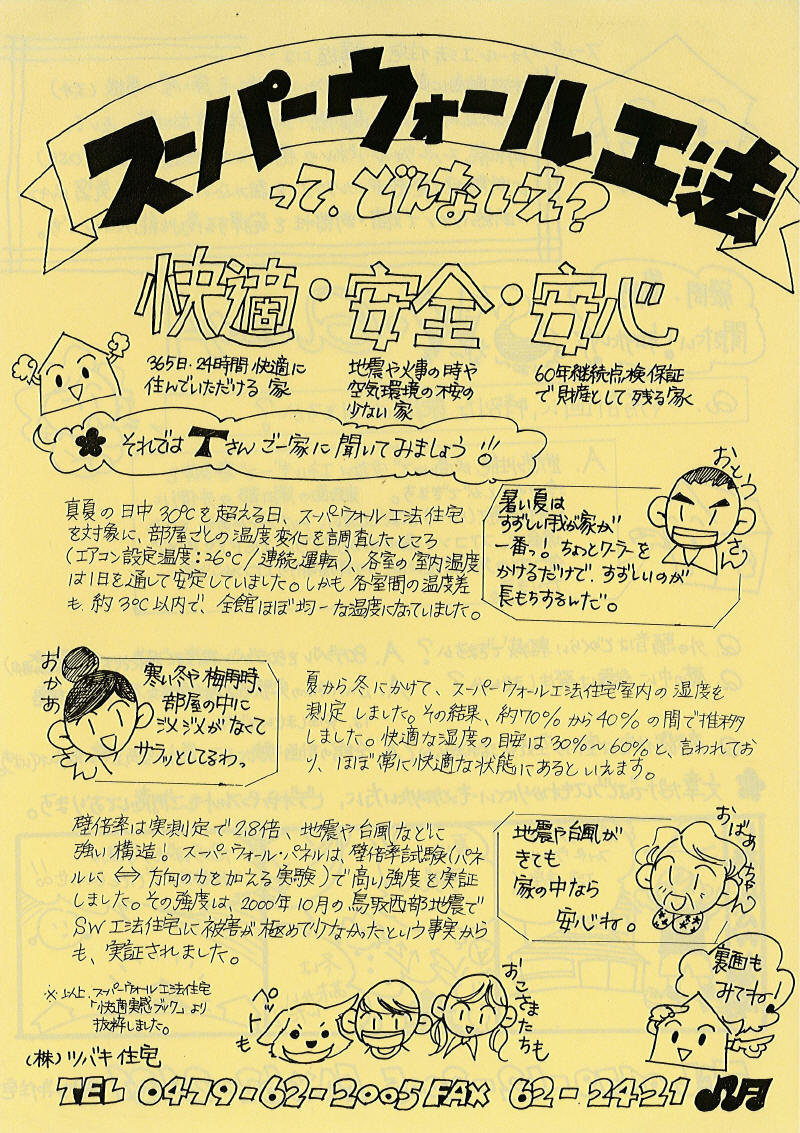 スーパーウォール工法
って、どんないえ?
快適・安全・安心
365日・24時間 快適に
住んでいただける 家
地震や火事の時や
空気環境の不安の
少ない家
60年継続点検保証
で財産として残る家
それでは Tさんご一家に聞いてみましょう!!
真夏の日中30℃を超える日、スーパーウォール工法住宅
を対象に、部屋ごとの温度変化を調査したところ
(エアコン設定温度:26℃/連続運転)、各室の室内温度
は1日を通して安定していました。しかも各室間の温度差
も、約3℃以内で、全館ほぼ均一な温度になっていました。
おとうさん
暑い夏は
すずしい我が家が
一番っ。ちょっとクーラーを
かけるだけで、すずしいのが
長もちするんだ。
おかあさん
寒い冬や梅雨時、
部屋の中に
ジメジメがなくて
サラッとしてるわ。
夏から冬にかけて、スーパーウォール工法住宅室内の湿度を
測定しました。その結果、約70%から40%の間で推移
しました。快適な湿度の目安は30%~60%と、言われてお
り、ほぼ常に快適な状態にあるといえます。
壁倍率は実測定で2.8倍、地震や台風などに
強い構造!スーパーウォール・パネルは、壁倍率試験(パネ
ルに⇔方向の力を加える実験)で高い強度を実証
しました。その強度は、2000年10月の鳥取西部地震で
SW工法住宅に被害が極めて少なかったという事実から
も、実証されました。
おばあちゃん
地震や台風が
きても
家の中なら
安心ね。
※以上、スーパーウォール工法住宅
「快適実感ブック」より
抜粋しました。
ペットも
おこさまたちも
裏面も
みてね!
(株)ツバキ住宅
TEL 0479-62-2005 FAX 62-2421